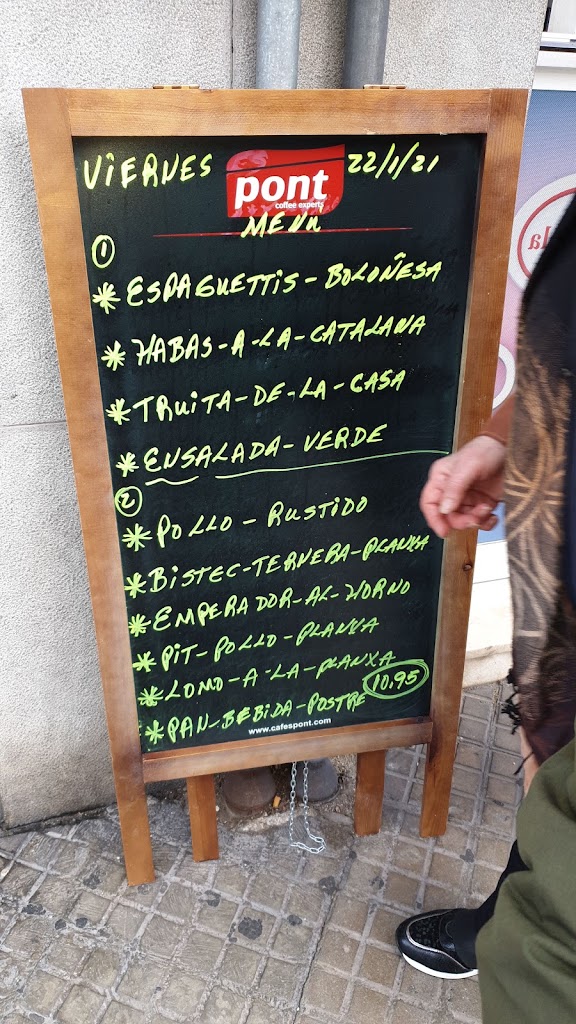 VIERNES pont 22/1/21
coffee experts
MENU
1
* ESPAGUETTIS-BOLOÑESA
* HABAS-A-LA-CATALANA
* TRUITA-DE-LA-CASA
* ENSALADA-VERDE
2
* POLLO-RUSTIDO
* BISTEC-TERNERA-PLANXA
* EMPERADOR-AL-HORNO
* PIT-POLLO-PLANXA
* LOMO-A-LA-PLANXA
10.95
* PAN-BEBIDA-POSTRE
www.cafespont.com